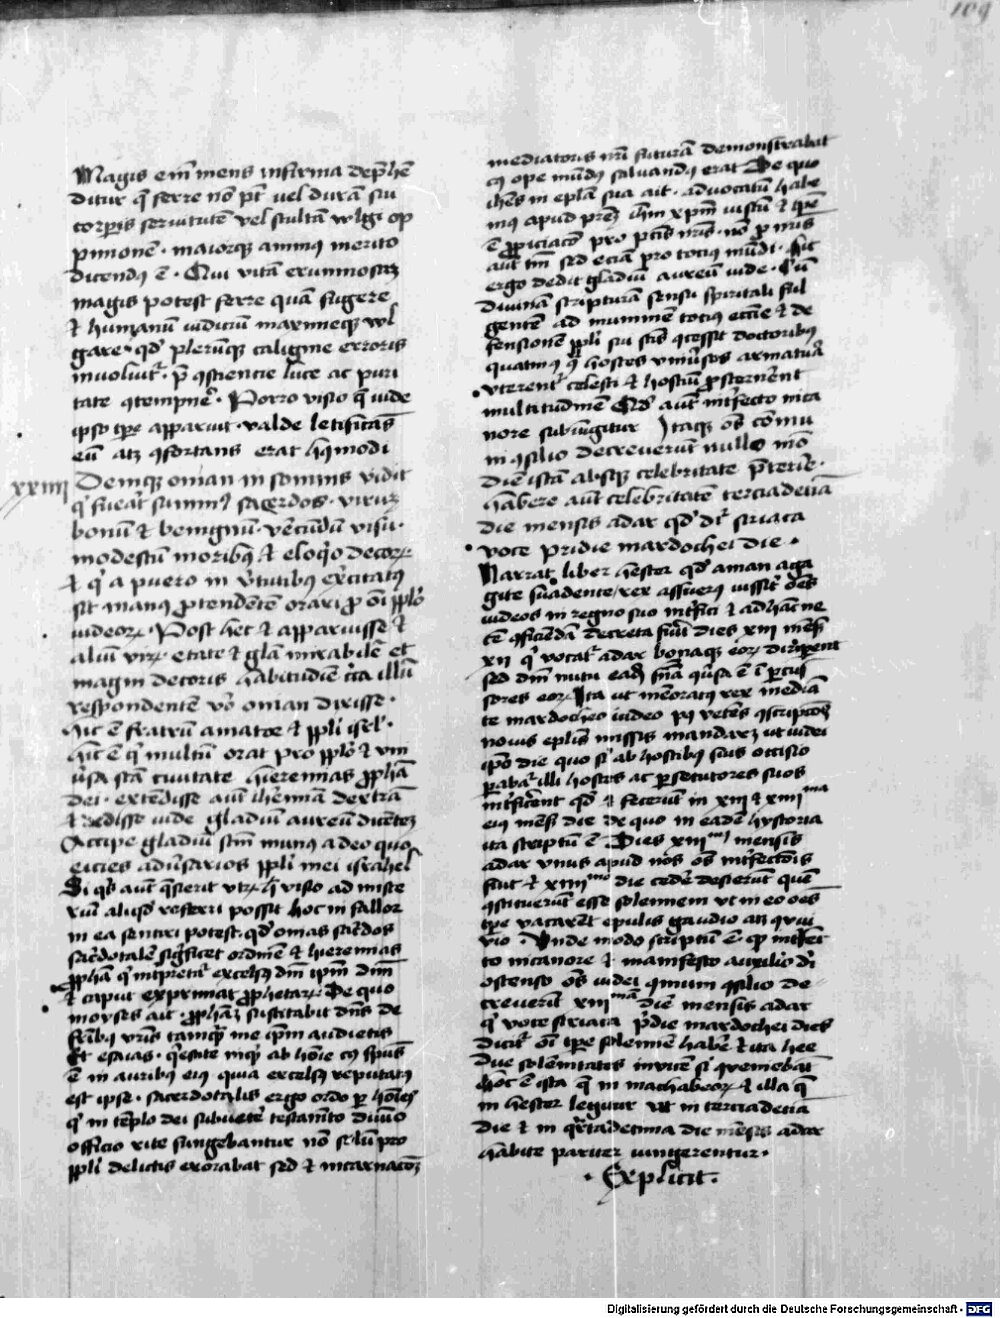 109
Magis em̄ mens infirma dep̄hē
ditur q̄ ferre nō pt̄ vel durā sui
corp̄is seruitutē vel stultā wlgi op
pinionē · maiorq̄ animꝰ merito
dicendꝰ ē · Qui vitā erumnosaꝫ
magis potest ferre quā fugere
⁊ humanū iudiciū maximeqꝫ wl
gare · qd̓ plerūqꝫ caligine erroris
inuoluit᷑ · p̄ ꝯsciencie luce ac puri
tate ꝯtempnē · Porro visio q̄ iude
ipso tp̄e apparuit · valde letificās
eū atqꝫ ꝯfortans erat hꝰmodi
xxiiii
Deniqꝫ onian in somnis vidit
q̓ fuerat summꝰ sacerdos · virum
bonū ⁊ benignū · verecūdū visu ·
modestū moribꝫ ⁊ eloq̓o decorꝝ
⁊ q̓ a puero in v̓tutibꝫ ex̓citatꝰ
sit manꝰ ꝓtendentē orare ꝓ oī pplo
iudeoꝝ · Post hec ⁊ apparuisse ⁊
aliū virū etate ⁊ gl̄a mirabilē et
magni decoris habitudīe circa illū
respondentē vō onian dixisse ·
hic ē fratrū amator ⁊ ppl̄i isrl̓ ·
hic ē q̓ multū orat pro pplo ⁊ vni
ūsa sctā ciuitate hieremias ꝓphā
dei · extēdisse aut̄ iheremiā dextrā
⁊ dedisse iude gladiū aureū dicentē
Accipe gladiū sctm̄ munꝰ a deo quo
eicies aduersarios ppl̄i mei israhel
Si q̓s aut̄ q̄sierit vtꝝ hec visio ad miste
rium aliqd̓ referri possit hoc ni fallor
in ea sentiri potest · qd̓ onias sac̓dos
sac̓dotalē significet ordinē ⁊ hieremias
ꝓpha q̓ int̓pretat᷑ excelsꝰ dn̄i ipm̄ dn̄m
⁊ caput exprimat ꝓphetaꝝ De quo
moyses ait · ꝓphetā suscitabit dn̄s de
fr̄ibꝫ vr̄is tamq̄ me ipm̄ audietis
Et esaias · quiescite inq̓t ab hoīe cuiꝰ spūs
ē in auribꝫ eiꝰ quia excelsꝰ reputatꝰ
est ipse · sacerdotalis ergo ordo ꝑ hoīes
q̓ in tēplo dei sub vetei testam̄to diuīo
officio rite fungebantur nō solū pro
ppl̄i delictis exorabat sed ⁊ incarnacōꝫ
mediatoris nr̄i futurā demonstrabat
cuiꝰ ope mūdꝰ saluandꝰ erat De quo
ihōes in epl̄a sua ait · aduocatū habe
mꝰ apud prēꝫ ihm̄ xpm̄ iustū ⁊ ip̄e
ē ꝓpiciacō pro pctīs nr̄is · nō ꝑ nr̄is
aut̄ tm̄ sed eciā pro tociꝰ mūdi · hic
ergo dedit gladiū aureū iude · Cū
diuinā scripturā sensu spiritali ful
gentē ad munimē tociꝰ eccl̄ie ⁊ de
fensionē ppl̄i sui sctīs ꝯcessit doctoribꝫ
quatinꝰ ꝯtra hostes vniūsos armatura
vterent᷑ celesti ⁊ hostiū ꝓsternerēt
multitudinē Qd̓ aut̄ int̓fecto nica
nore subiungitur Itaqꝫ oēs cōmu
ni ꝯsilio decreuerunt nullo mō
diē istā absqꝫ celebritate p̄terire ·
habere aut̄ celebritatē terciadecīa
die mensis adar qd̓ dr̄ siriaca
voce pridie mardochei die ·
Narrat liber hester qd̓ aman aga
gite suadente rex assuerꝰ iussit oēs
iudeos in regno suo int̓fici ⁊ ad hāc ne
cē ꝯficiendā decreta fuit dies xiii mēs̄
xii q̓ vocat᷑ adar bonaqꝫ eoꝝ diripent
sed dn̄i nutu eadē sn̄ia q̄rsa ē ī ꝑcus
sores eoꝝ Ita ut memoratꝰ rex mediā
te mardocheo iudeo ꝑ vetēs ꝯscripcōꝫ
nouis epl̄is missis mandaret ut iudei
ip̄o die quo se ab hostibꝫ suis occisio
ꝑabat᷑ illi hostes ac ꝑsecutores suos
int̓ficerent qd̓ ⁊ fecerūt in xiii ⁊ xiiii ma
eiꝰ mēs̄ die De quo in eadē hystoria
ita scriptū ē Dies xiii mꝰ mensis
adar vnus apud nos oīs int̓fectōis
fuit ⁊ xiiii mo die cedē desierūt quē
ꝯstituerūt esse solennem ut in eo oēs
tp̄e vacarēt epulis gaudio atqꝫ ꝯuiu
vio · Unde modo scriptū ē qꝫ int̓fec
to nicanore ⁊ manifesto auxilio dei
ostenso oēs iudei ꝯmuni ꝯsilio de
creuerūt xiii mā diē mensis adar
q̓ voce siriaca pr̄die mardochei dies
dicit᷑ oī tp̄e solennē habē ⁊ ita hee
due solēnitates inuicē sr̄ q̄uenebāt
hoc ē ista q̄ in machabeoꝝ ⁊ illa q̄
in hester legitur ut in terciadecīa
die ⁊ in q̓rtadecima die mēsis adar
habite pariter iungerentur ·
· Explicit ·
Digitalisierung gefördert durch die Deutsche Forschungsgemeinschaft - DFG